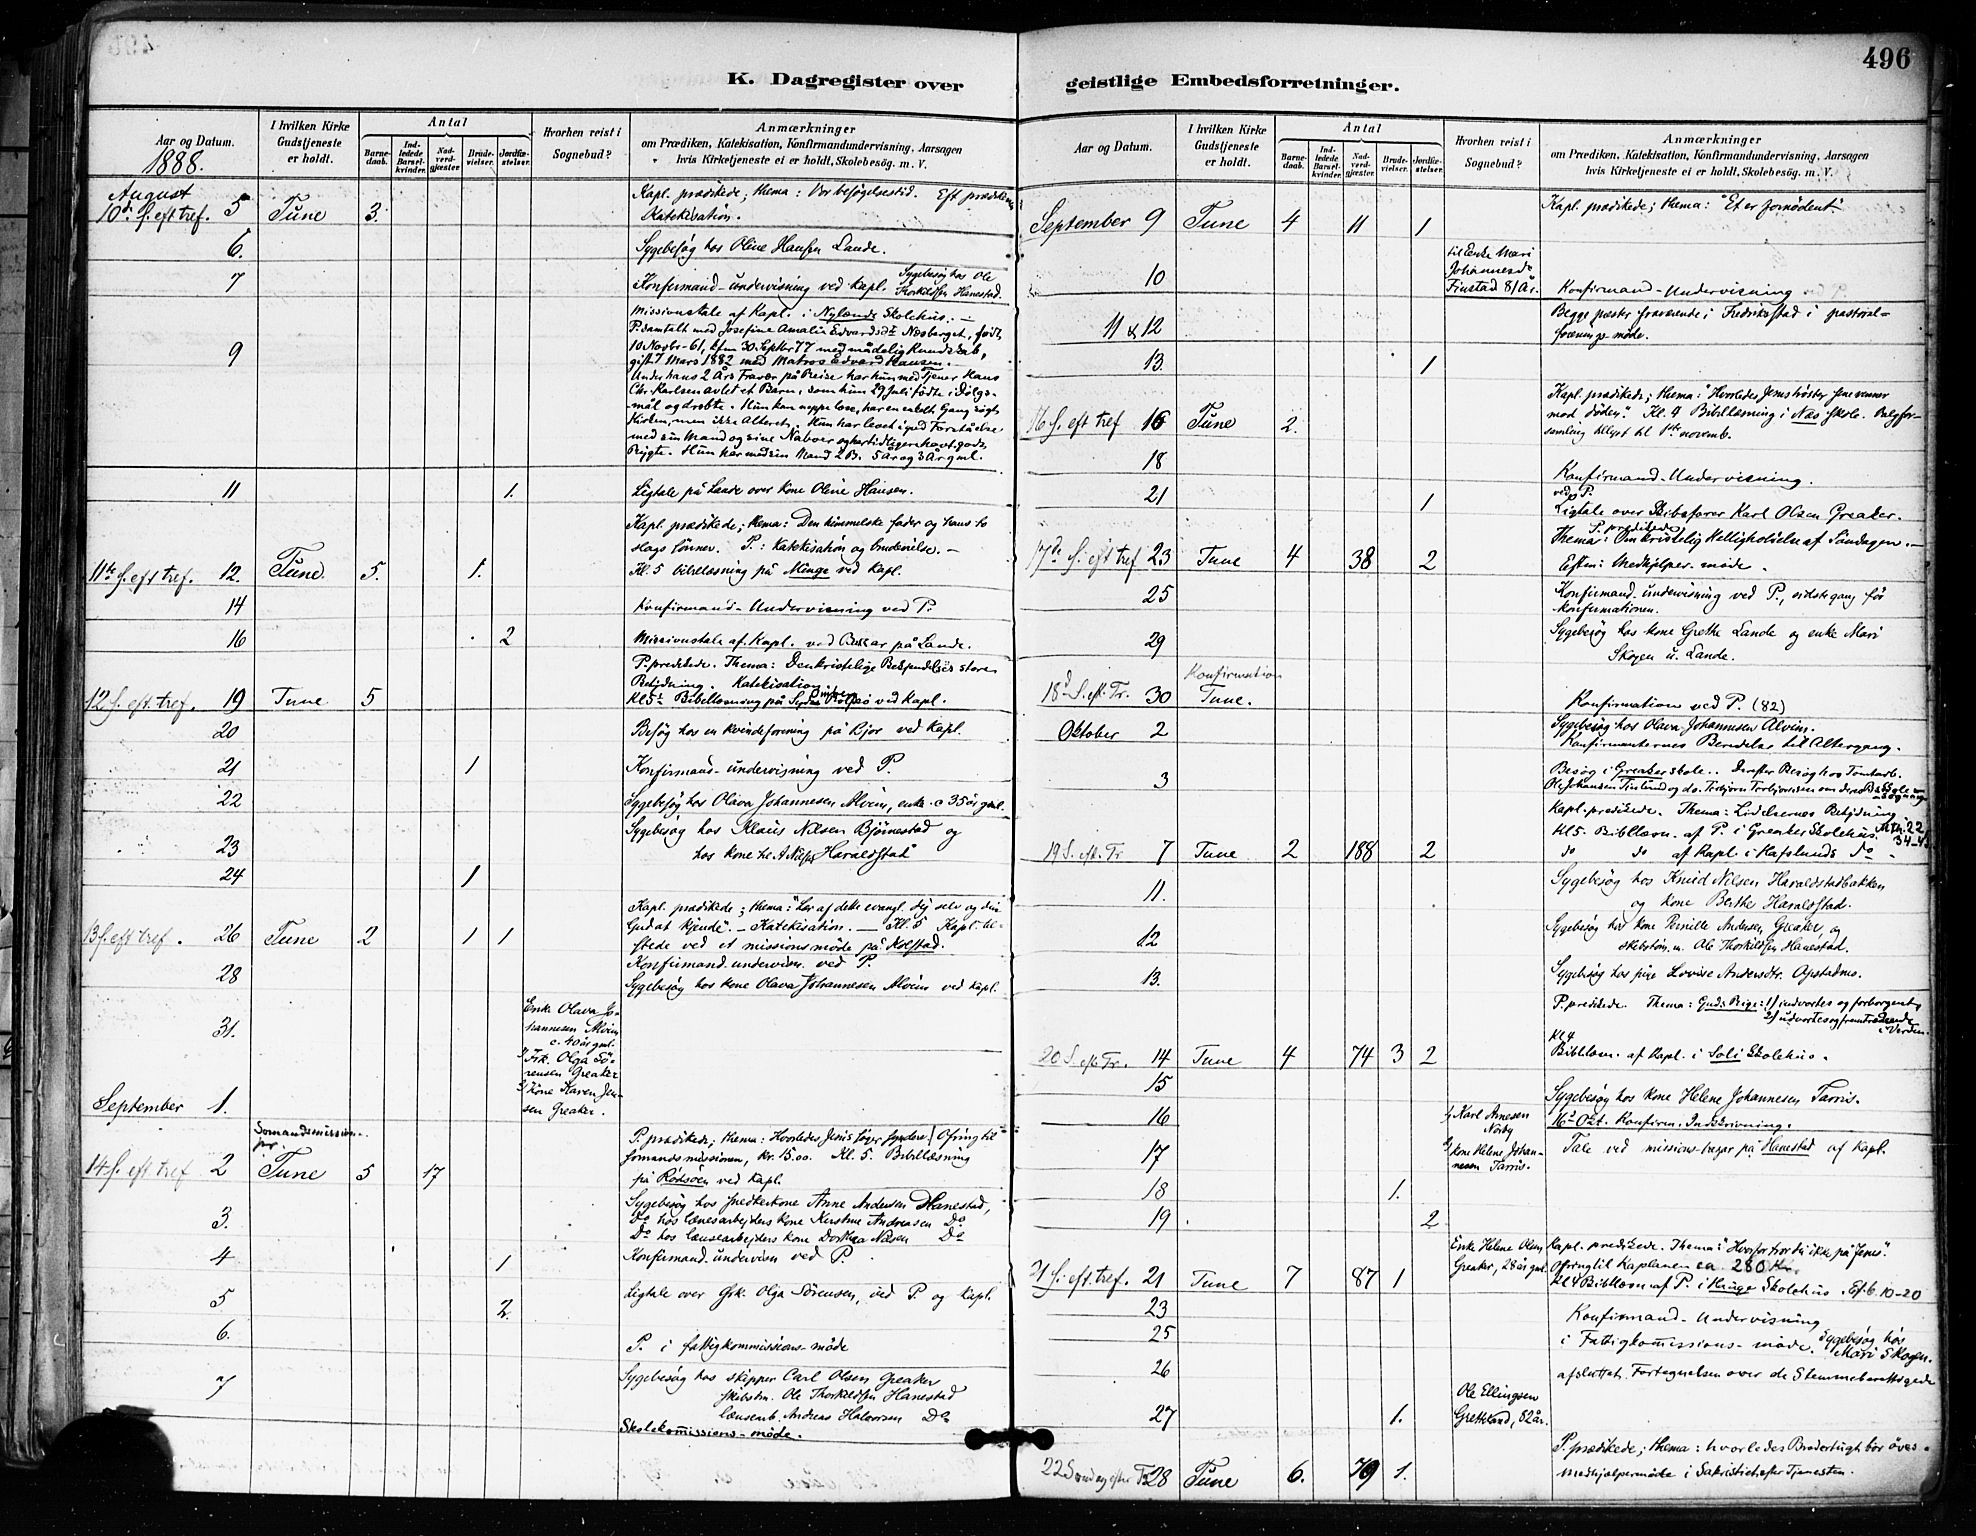 496
K. Dagregister over geistlige Embedsforretninger.
Aar og Datum.
1888.
I hvilken Kirke Gudstjeneste er holdt.
Antal
Barnedaab.
Indledede Barselkvinder.
Nadverdgjester
Brudevielser.
Jordfæstelser.
Hvorhen reist i Sognebud?
Anmærkninger
om Prædiken, Katekisation, Konfirmandundervisning, Aarsagen
hvis Kirketjeneste ei er holdt, Skolebesøg. m. V.
August
Kapl. prædikede; thema: Vor besøgelsestid. Eft prædiken
10de S. eft tref. 5 Tune 3. Katekisation.
6. Sygebesøg hos Oline Hansen Lande.
Sygebesøg hos Ole
7 Konfirmand-undervisning ved Kapl. Thorkildsen Hanestad.
Missionstale af Kapl. i Nylands Skolehus. —
P. samtalt med Josefine Amalia Edvardsdr Næsberget, født
9 10 Novbr-61, kfm 30 Septbr 77 med mådelig Kundskab,
gift 7 Mars 1882 med Matros Edvard Hansen.
Under hans 2 Års Fravær på Reise har hun med Tjener Hans
Chr. Karlsen avlet et Barn, som hun 29 Juli fødte i Dølgs-
mål og dræbte. Hun kan neppe læse, har en enkelt Gang søgt
Kirken, men ikke Alteret. Hun har levet i god Forståelse
med sin Mand og sine Naboer og har tidligere havt godt
Rygte. Hun har med sin Mand 2 B. 5 År og 3 År gml.
11 1. Ligtale på Lande over kone Oline Hansen.
Kapl. prædikede; thema: Den himmelske fader og hans to
slags sønner. P.: Katekisation og brudevielse. —
11te S. eft tref. 12. Tune 5. 1. Kl. 5 bibellæsning på Minge ved Kapl.
14 Konfirmand-Undervisning ved P.
16 2 Missionstale af Kapl. ved Basar på Lande.
P. predikede. Thema: Den kristelige
Betydning. Katekisation.
12 S. eft. tref. 19 Tune 5 Kl 5: Bibellæsning på Rolfsø ved Kapl.
20 Besøg hos en kvindeforening på Bjor ved Kapl.
21 1 Konfirmand-undervisning ved P.
22 Sygebesøg hos Olava Johannesen Alvim, enke c 35 år gml.
Sygebesøg hos Klaus Nilsen Bjørnestad og
23 hos kone A. Nilsen Haraldstad
24 1
Kapl. prædikede; thema: "Lær af dette evangl. dig selv og din
13 S. eft tref. 26 Tune 2 1 1 Gud at kjende". — Katekisation. — Kl. 5 Kapl. til-
stede ved et missionsmøde på Kolstad.
28 Konfirmand. undervisn. ved P.
Sygebesøg hos kone Olava Johannesen Alvim ved Kapl.
31. Enke Olava Jo-
hannesen Alvim
c. 40 år gml.
Frk. Olga Sø-
rensen Greaker
September 1. Kone Karen Jen-
sen Greaker.
Sømandsmission
P. prædikede; thema: Hvorledes Jesus søger syndere. / Ofring til
sømandsmissionen, kr. 15.00. Kl. 5. Bibellæsning
14 S. eft tref 2 Tune 5 17 på Rødsøen ved Kapl.
Sygebesøg hos snedkerkone Anne Andersen Hanestad,
3. Do hos lænsearbejders kone Kirstine Andreasen Do
Do hos lænsearbejders kone Dorthea Nilsen Do
4 1 Konfirmand. undervisn ved P.
5 2. Ligtale over Frk. Olga Sørensen, ved P. og Kapl.
6. P. i fattigkommissions-møde
7 Sygebesøg hos skipper Carl Olsen Greaker
Skibstm. Ole Thorkildsen Hanestad
lænsearb. Andreas Halvorsen Do
Skolekommissions-møde.
Aar og Datum.
I hvilken Kirke Gudstjeneste er holdt.
Antal
Barnedaab.
Indledede Barselkvinder.
Nadverdgjester
Brudevielser.
Jordfæstelser.
Hvorhen reist i Sognebud?
Anmærkninger
om Prædiken, Katekisation, Konfirmandundervisning, Aarsagen
hvis Kirketjeneste ei er holdt, Skolebesøg. m. V.
September 9 Tune 4 11 1 Kapl. prædikede; thema: "Et er fornødent".
10 til Enke Mari
Johannesdr
Finstad 81 År. Konfirmand-Undervisning
11 & 12 Begge præster fraværende i Fredriksstad i pastoral-
forenings møde.
13. 1
Kapl. prædikede; thema: "Hvorledes Jesus trøster sine venner
16 S. eft tref 16 Tune 2. mod døden". Kl. 4 Bibellæsning i Næs skole. Valgfor-
samling tillyst til 1ste novemb.
18 Konfirmand-Undervisning.
ved P.
21 1 Ligtale over Skibsfører Karl Olsen Greaker.
P. predikede
Thema: Om kristelig Helligholdelse af Søndagen. —
17de S. eft tref 23 Tune 4 38 2 Eftm: Medhjelper-møde.
25 Konfirmand-undervisning ved P., sidste gang før
konfirmationen.
29 Sygebesøg hos kone Grethe Lande og enke Mari
Skogen u. Lande.
Konfirmation
18d S. ef. Tr. 30 Tune. Konfirmation ved P. (82)
Oktober 2 Sygebesøg hos Olava Johannesen Alvim.
Konfirmanternes Beredelse til Altergang.
3 Besøg i Greaker skole.. Derefter Besøg hos Tomtarb.
Ole Johansen Tinlund og do. Torbjørn Torbjørnsen om deres
Kapl. predikede. Thema: Lidelsernes Betydning
Kl 5. Bibellæsn. af P. i Greaker Skolehus. Mth. 22
19 S. eft. Tr 7 Tune 2 188 2 do do af Kapl. i Hafslunds do. 34-
11. Sygebesøg hos Knud Nilsen Haraldstadbakken
og kone Berthe Haraldstad.
12 Sygebesøg hos kone Pernille Andersen Greaker, og
skibstøm. m. Ole Thorkildsen Hanestad.
13. Sygebesøg hos pige Lovise Andersdtr. Opstadmo.
P. predikede. Thema: Guds Rige: 1) indvortes og forborgent,
2) udvortes og fremtrædende
i Verden.
Kl 4
20 S. eft Tr. 14 Tune 4 74 3 2 Bibellæsn. af Kapl. i Soli Skolehus.
15 Sygebesøg hos kone Helene Johannesen Tarris.
16 1, Karl Arnesen
Norby 16de Okt. Konfirm. Indskrivning.
17 2, kone Helene Johan-
nesen Tarris. Tale ved missions-basar på Hanestad af Kapl.
18 1.
19 2
Enke Helene Olsen
Greaker, 28 år gml. Kapl. predikede. Thema: "Hvorfor tror du ikke på Jesus".
21 S. eft. tref. 21 Tune 7 87 1 Ofring til Kaplanen ca. 280 Kr.
Kl 4 Bibellæsn af P. i Hauge Skolehus. Ef. 6. 10-20
23 Konfirmand-Undervisning
25 i Fattigkommissions-møde. Sygebesøg hos
Mari Skogen.
26 afsluttet Fortegnelsen over de Stemmeberettigede
27 1. Ole Ellingsen
Gretteland, 82 år.
P. prædikede; thema: hvorledes Brodertugt bør øves.
22 Søndag efter Tr 28 Tune 6. 79 1. Medhjælpermøde i Sakristiet efter Tjenesten.